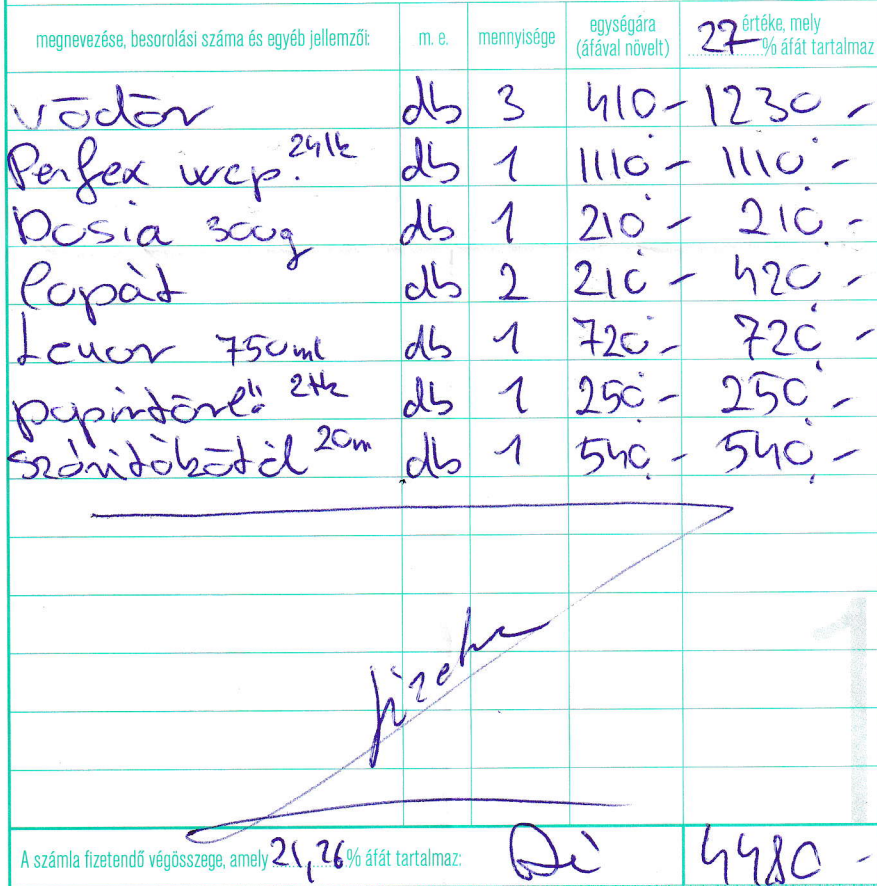 megnevezése, besorolási száma és egyéb jellemzői: m. e. mennyisége egységára (áfával növelt) 27 értéke, mely % áfát tartalmaz
vödör db 3 410- 1230-
Perfex wcp. 24tk db 1 1110- 1110-
Dosia 300g db 1 210- 210-
Lapát db 2 210- 420-
Lenor 750ml db 1 720- 720-
papírtörlő 2tk db 1 250- 250-
szárítókötél 20m db 1 540- 540-
fizetve
A számla fizetendő végösszege, amely 21,26% áfát tartalmaz: 4480-
1